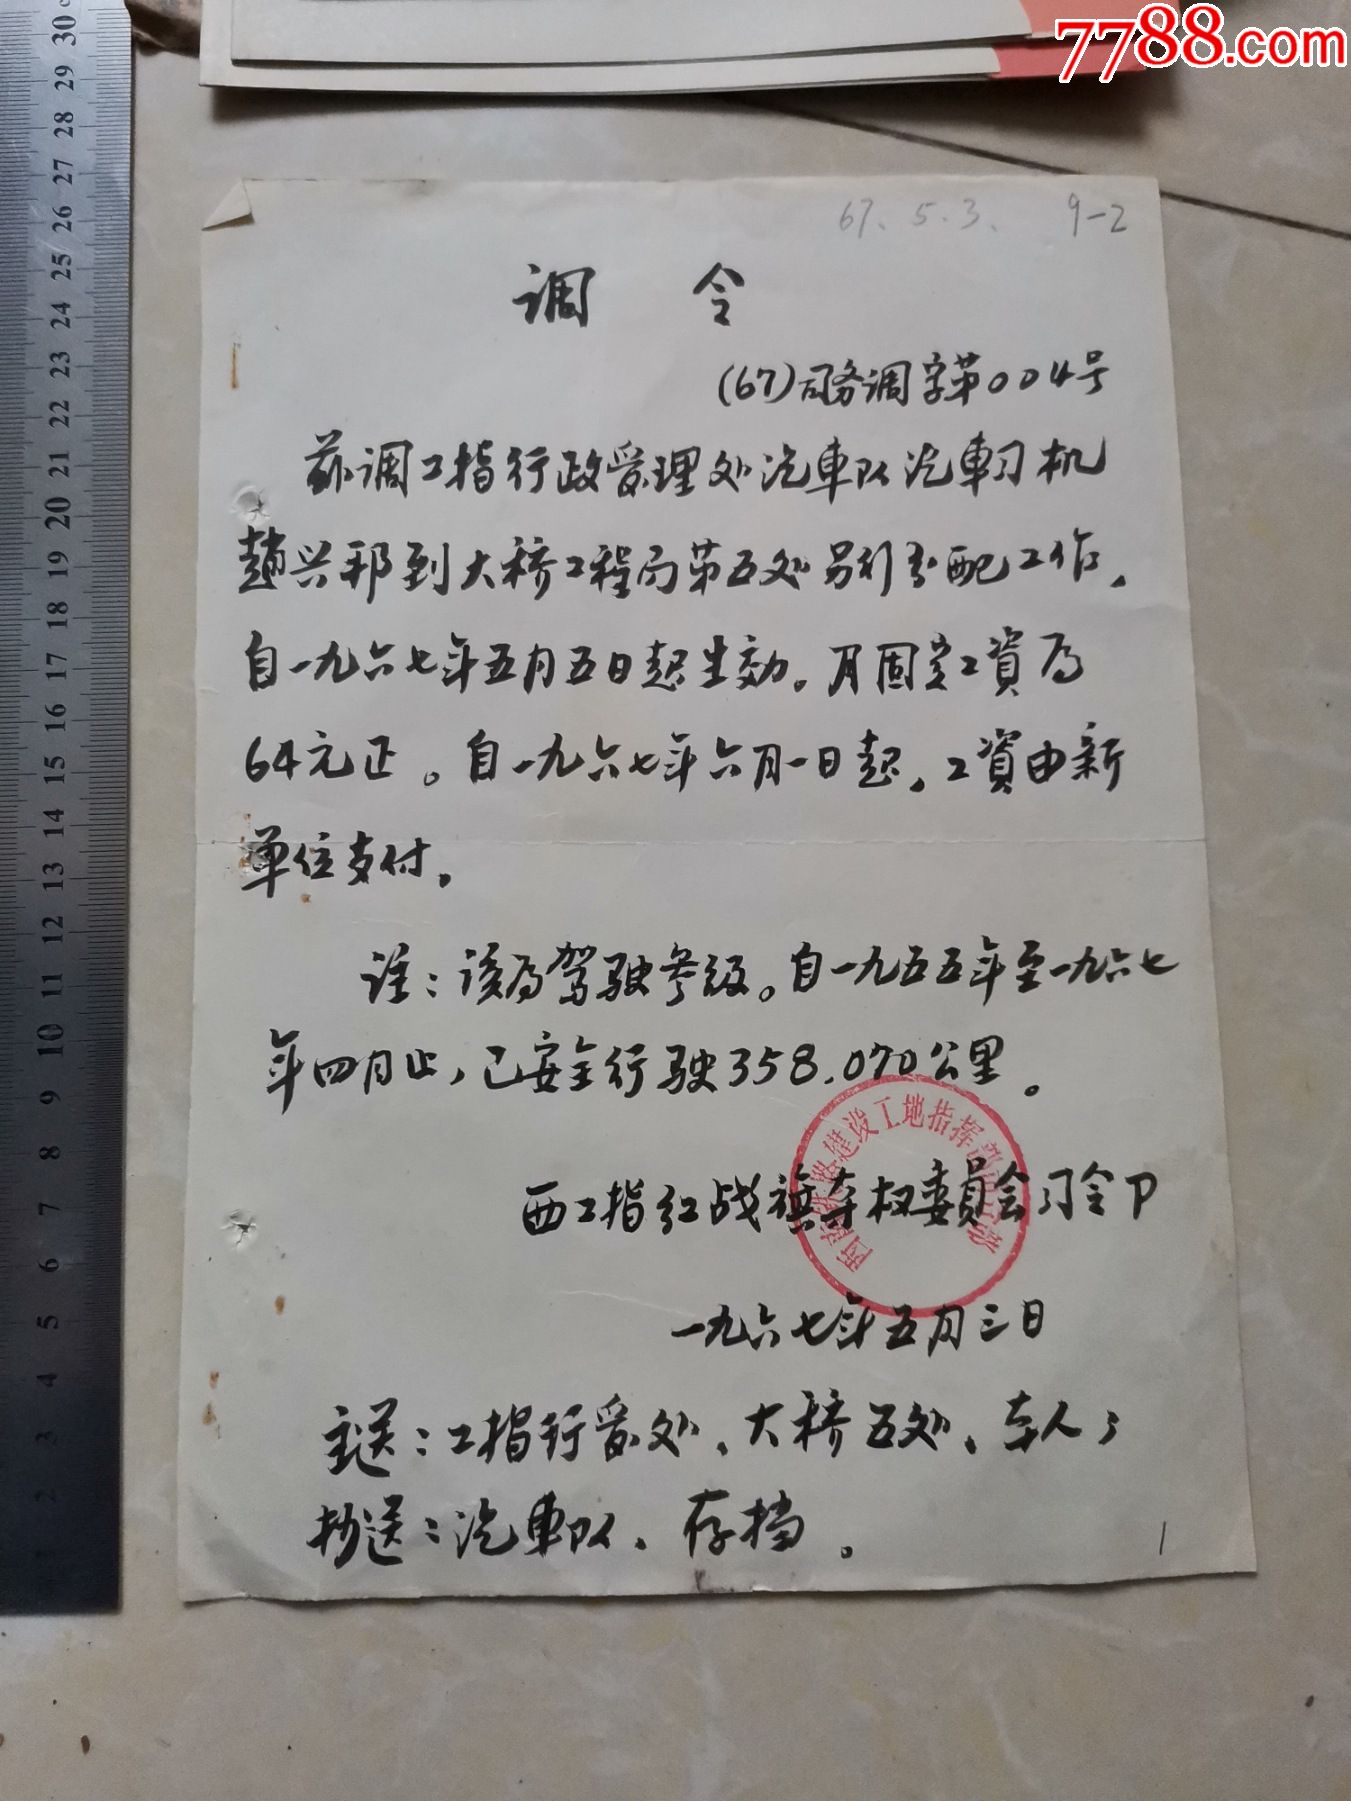 7788.com
67.5.3. 9-2
调 令
(67)司务调字第004号
兹调工指行政管理处汽車队汽車司机
趙兴邦到大桥工程局第五处另行分配工作,
自一九六七年五月五日起生効。月固定工資为
64元正。自一九六七年六月一日起,工資由新
单位支付。
注:该为驾驶叁级。自一九五五年至一九六七
年四月止,已安全行驶358,070公里。
西工指红战旗夺权委員会司令卩
一九六七年五月三日
主送:工指行管处、大桥五处、本人;
抄送:汽車队、存档。
1
路建设工地指挥部
30
29
28
27
26
25
24
23
22
21
20
19
18
17
16
15
14
13
12
11
10
9
8
7
6
5
4
3
2